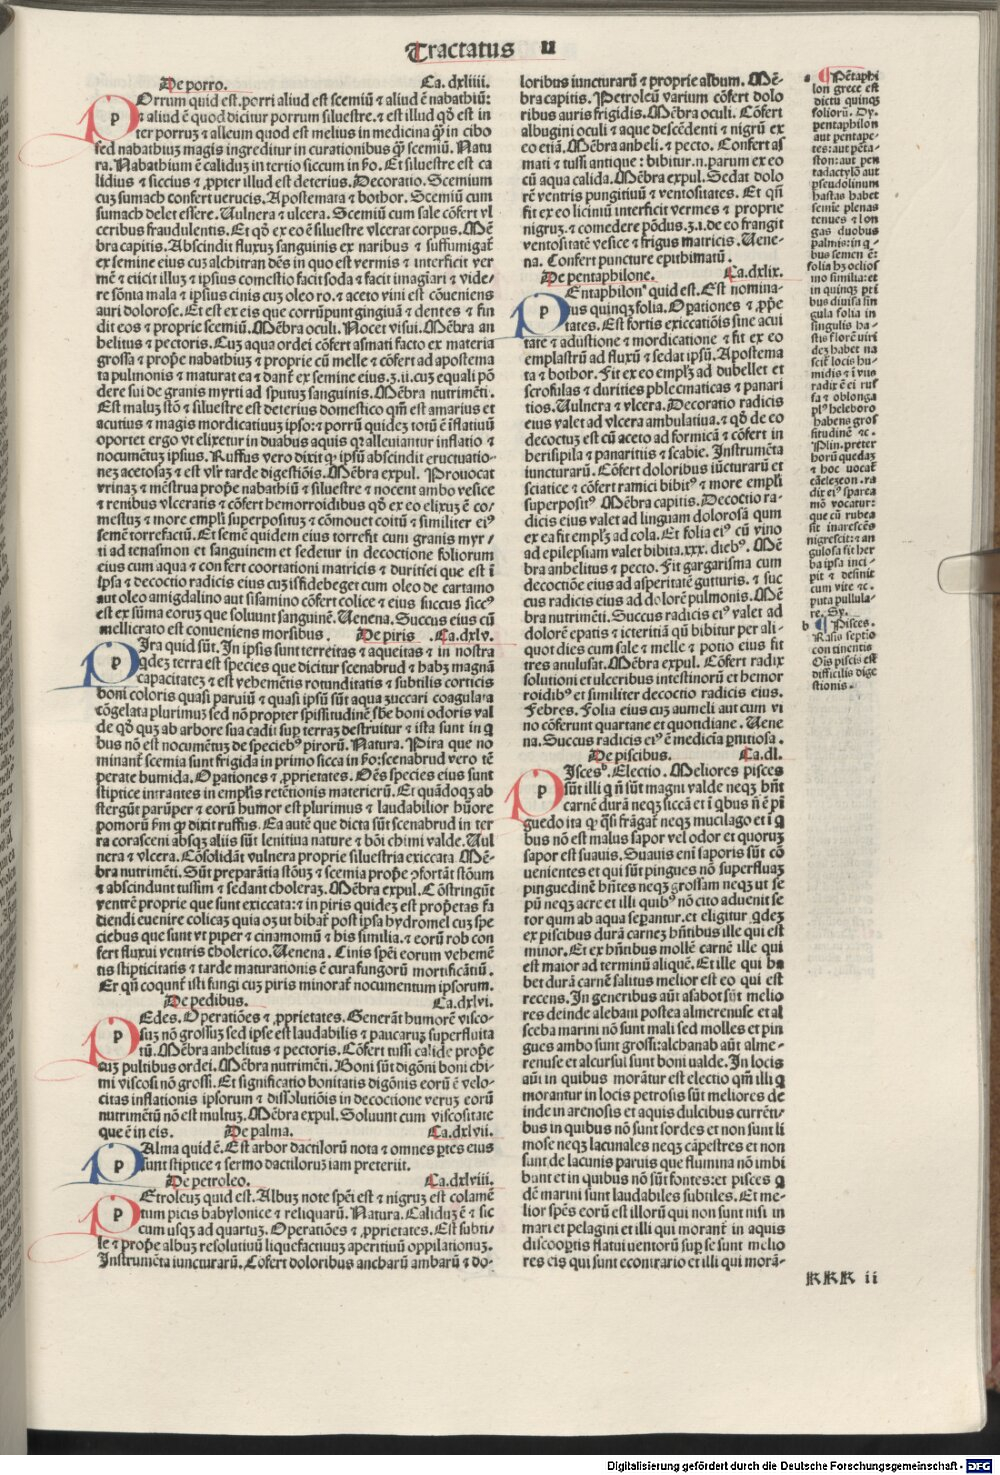 Tractatus II
De porro. Ca.dxliiii.
POrrum quid est. porri aliud est scemiũ ⁊ aliud ẽ nabathiũ:
⁊ aliud ẽ quod dicitur porrum siluestre. ⁊ est illud qd̃ est in
ter porruꝫ ⁊ alleum quod est melius in medicina q̃ȝ in cibo
sed nabathiuꝫ magis ingreditur in curationibus q̃ȝ scemiũ. Natu
ra. Nabathium ẽ caliduꝫ in tertio siccum in ẜo. Et siluestre est ca
lidius ⁊ siccius ⁊ ꝓpter illud est deterius. Decoratio. Scemium
cuꝫ sumach confert uerucis. Apostemata ⁊ bothor. Scemiũ cum
sumach delet essere. Uulnera ⁊ ulcera. Scemiũ cum sale cõfert vl
ceribus fraudulentis. Et qd̃ ex eo ẽ siluestre vlcerat corpus. Mẽ
bra capitis. Abscindit fluxuꝫ sanguinis ex naribus ⁊ suffumigat᷑
ex semine eius cuꝫ alchitran dẽs in quo est vermis ⁊ interficit ver
mẽ ⁊ eiicit illuꝫ ⁊ ipsius comestio facit soda ⁊ facit imagiari ⁊ vide
re sõnia mala ⁊ ipsius cinis cuꝫ oleo ro. ⁊ aceto vini est cõueniens
auri dolorose. Et est ex eis que corrũpunt gingiuã ⁊ dentes ⁊ fun
dit eos ⁊ proprie scemiũ. Mẽbra oculi. Nocet visui. Mẽbra an
belitus ⁊ pectoris. Cuꝫ aqua ordei cõfert asmati facto ex materia
grossa ⁊ prop̃e nabathiuꝫ ⁊ proprie cũ melle ⁊ cõfert ad apostema
ta pulmonis ⁊ maturat ea ⁊ dant᷑ ex semine eius.ʒ.ii. cuꝫ equali põ
dere sui de granis myrti ad sputuꝫ sanguinis. Mẽbra nutrimẽti.
Est maluꝫ stõ ⁊ siluestre est deterius domestico qm̃ est amarius et
acutius ⁊ magis mordicatiuuꝫ ipso: ⁊ porrũ quideꝫ totũ ẽ iflatiuũ
oportet ergo vt elixetur in duabus aquis qꝛ alleuiantur inflatio ⁊
nocumẽtuꝫ ipsius. Ruffus vero dixit qꝫ ipsũ abscindit eructuatio
neꝫ acetosaꝫ ⁊ est vlr̃ tarde digestiõis. Mẽbra expul. Prouocat
vrinaꝫ ⁊ mẽstrua prop̃e nabathiũ ⁊ siluestre ⁊ nocent ambo vesice
⁊ renibus vlceratis ⁊ cõfert hemorroidibus qd̃ ex eo elixuꝫ ẽ co
mestuꝫ ⁊ more empl̃i superpositũꝫ ⁊ cõmouet coitũ ⁊ similiter eiꝰ
semẽ torrefactũ. Et semẽ quidem eius torrefit cum granis myr
ti ad tenasmon et sanguinem et sedetur in decoctione foliorum
eius cum aqua ⁊ confert coortationi matricis ⁊ duritiei que est ĩ
ipsa ⁊ decoctio radicis eius cuꝫ isfidebeget cum oleo de cartamo
aut oleo amigdalino aut sisamino cõfert colice ⁊ eius succus siccꝰ
est ex sũma eoruꝫ que soluunt sanguinẽ. Uenena. Succus eius cũ
mellicrato est conueniens morsibus. De piris. Ca.dxlv.
PIra quid sũt. In ipsis sunt terreitas ⁊ aqueitas ⁊ in nostra
qdeꝫ terra est species que dicitur scenabrud ⁊ habꝫ magnã
capacitateꝫ ⁊ est vehemẽtis rotunditatis ⁊ subtilis corticis
boni coloris quasi paruiũ ⁊ quasi ipsũ sũt aqua zuccari coagulata
cõgelata plurimuꝫ sed nõ propter spissitudinẽ sbẽ boni odoris val
de qd̃ quꝫ ab arbore sua cadit sup terraꝫ destruitur ⁊ ista sunt in q
bus nõ est nocumẽtuꝫ de speciebꝰ piroruꝫ. Natura. Pira que no
minant᷑ scemia sunt frigida in primo sicca in ẜo: scenabrud vero tẽ
perate humida. Op̃ationes ⁊ ꝓprietates. Oẽs species eius sunt
stiptice intrantes in emplr̃is retẽtionis materierũ. Et quãdoqꝫ ab
stergũt paruꝑ ⁊ eorũ humor est plurimus ⁊ laudabilior hũore
pomorũ ẜm qꝫ dixit ruffus. Ea autẽ que dicta sũt scenabrud in ter
ra corasceni absqꝫ aliis sũt lenitiua nature ⁊ bõi chimi valde. Uul
nera ⁊ vlcera. Cõsolidãt vulnera proprie siluestria exiccata. Mẽ
bra nutrimẽti. Sũt preparãtia stõuꝫ ⁊ scemia prop̃e ɔfortãt stõum
⁊ abscindunt tussim ⁊ sedant choleraꝫ. Mẽbra expul. Cõstringũt
ventrẽ proprie que sunt exiccata: ⁊ in piris quideꝫ est prop̃etas fa
ciendi euenire colicaꝫ quia oꝫ ut bibat᷑ post ipsa hydromel cuꝫ spe
ciebus que sunt vt piper ⁊ cinamomũ ⁊ his similia. ⁊ eorũ rob con
fert fluxui ventris cholerico. Uenena. Cinis sp̃ei eorum vehemẽ
tis stipticitatis ⁊ tarde maturationis ẽ cura fungorũ mortificãtiũ.
Et qñ coqunt᷑ isti fungi cuꝫ piris minorat᷑ nocumentum ipsorum.
De pedibus. Ca.dxlvi.
PEdes. Operatiões ⁊ ꝓprietates. Generãt humorẽ visco
suꝫ nõ grossuꝫ sed ipse est laudabilis ⁊ paucaruꝫ superfluita
tũ. Mẽbra anhelitus ⁊ pectoris. Cõfert tussi calide prop̃e
cuꝫ pultibus ordei. Mẽbra nutrimẽti. Boni sũt digõni boni chi
mi viscosi nõ grossi. Et significatio bonitatis digõnis eorũ ẽ velo
citas inflationis ipsorum ⁊ dissolutiõis in decoctione veruꝫ eorũ
nutrimẽtũ nõ est multuꝫ. Mẽbra expul. Soluunt cum viscositate
que ẽ in eis. De palma. Ca.dxlvii.
PAlma quid ẽ. Est arbor dactilorũ nota ⁊ omnes ꝑtes eius
sunt stiptice ⁊ sermo dactiloruꝫ iam preteriit.
De petroleo. Ca.dxlviii.
PEtroleuꝫ quid est. Albuꝫ note sp̃ei est ⁊ nigruꝫ est colamẽ
tum picis babylonice ⁊ reliquarũ. Natura. Caliduꝫ ẽ ⁊ sic
cum usqꝫ ad quartuꝫ. Operatiões ⁊ ꝓprietates. Est subti
le ⁊ prop̃e albuꝫ resolutiuũ liquefactiuuꝫ aperitiuũ oppilationuꝫ.
Instrumẽta iuncturarũ. Cõfert doloribus ancharũ ambarũ ⁊ do
loribus iuncturarũ ⁊ proprie album. Mẽ
bra capitis. Petroleũ varium cõfert dolo
ribus auris frigidis. Mẽbra oculi. Cõfert
albugini oculi ⁊ aque descẽdenti ⁊ nigrũ ex
eo etiã. Mẽbra anheli. ⁊ pecto. Confert as
mati ⁊ tussi antique: bibitur.n.parum ex eo
cũ aqua calida. Mẽbra expul. Sedat dolo
rẽ ventris pungitiuũ ⁊ ventositates. Et qñ
fit ex eo liciniũ interficit vermes ⁊ proprie
nigruꝫ. ⁊ comedere põdus.ʒ.i. de eo frangit
ventositatẽ vesice ⁊ frigus matricis. Uene
na. Confert puncture epithimatũ.
De pentaphilone. Ca.dxlix.
PEntaphilonª quid est. Est nomina
tus quinqꝫ folia. Op̃ationes ⁊ ꝓp̃e
tates. Est fortis exiccatiõis sine acui
tate ⁊ adustione ⁊ mordicatione ⁊ fit ex eo
emplastrũ ad fluxũ ⁊ sedat ipsũ. Apostema
ta ⁊ bothor. Fit ex eo emplꝫ ad dubellet et
scrofulas ⁊ durities phlecmaticas ⁊ panari
tios. Uulnera ⁊ vlcera. Decoratio radicis
eius valet ad vlcera ambulatiua. ⁊ qd̃ de eo
decoctuꝫ est cũ aceto ad formicã ⁊ cõfert in
herisipila ⁊ panaritiis ⁊ scabie. Instrumẽta
iuncturarũ. Cõfert doloribus iũcturarũ et
sciatice ⁊ cõfert ramici bibitꝰ ⁊ more empl̃i
superpositꝰ. Mẽbra capitis. Decoctio ra
dicis eius valet ad linguam dolorosã qum
ex ea fit emplꝫ ad cola. Et folia eiꝰ cũ vino
ad epilepsiam valet bibita.xxx. diebꝰ. Mẽ
bra anhelitus ⁊ pecto. Fit gargarisma cum
decoctiõe eius ad asperitatẽ gutturis. ⁊ suc
cus radicis eius ad dolorẽ pulmonis. Mẽ
bra nutrimẽti. Succus radicis eiꝰ valet ad
dolorẽ epatis ⁊ icteritiã qñ bibitur per ali
quot dies cum sale ⁊ melle ⁊ potio eius fit
tres anulusat. Mẽbra expul. Cõfert radix
solutioni et ulceribus intestinorũ et hemor
roidibꝰ et similiter decoctio radicis eius.
Febres. Folia eius cuꝫ aumeli aut cum vi
no cõferunt quartane et quotidiane. Uene
na. Succus radicis eiꝰ ẽ medicia ꝑnitiosa.
De piscibus. Ca.dl.
PIscesᵇ. Electio. Meliores pisces
sũt illi q ñ sũt magni valde neqꝫ hñt
carnẽ durã neqꝫ siccã et ĩ qbus ñ ẽ pĩ
guedo ita qꝫ q̃si frãgat᷑ neqꝫ mucilago et ĩ q
bus nõ est malus sapor vel odor et quoruꝫ
sapor est suauis. Suauis eni saporis sũt cõ
uenientes et qui sũt pingues nõ superfluaꝫ
pinguedinẽ hñtes neqꝫ grossam neqꝫ ut se
pũ neqꝫ acre et illi quibꝰ nõ cito aduenit fe
tor qum ab aqua sepantur. et eligitur qdeꝫ
ex piscibus durã carneꝫ hñtibus ille qui est
minor. Et ex hñtibus mollẽ carnẽ ille qui
est maior ad terminũ aliquẽ. Et ille qui ha
bet durã carnẽ salitus melior est eo qui est
recens. In generibus aũt asabot sũt melio
res deinde alebani postea almerenuse et al
sceba marini nõ sunt mali sed molles et pin
gues ambo sunt grossi: alchanab aũt alme
renuse et alcursul sunt boni ualde. In locis
aũt in quibus morãtur est electio qm̃ illi q
morantur in locis petrosis sũt meliores de
inde in arenosis et aquis dulcibus currẽti
bus in quibus nõ sunt sordes et non sunt li
mose neqꝫ lacunales neqꝫ cãpestres et non
sunt de lacunis paruis que flumina nõ imbi
bunt et in quibus nõ sũt fontes: et pisces q
dẽ marini sunt laudabiles subtiles. Et me
lior sp̃es eorũ est illorũ qui non sunt nisi in
mari et pelagini et illi qui morant᷑ in aquis
discooꝑtis flatui uentorũ suꝑ se sunt melio
res eis qui sunt econtrario et illi qui morã
a ¶ Pẽtaphi
lon grece est
dictũ quinqꝫ
foliorũ. Dy.
pentaphilon
aut pentape
tes: aut pẽta
ston: aut pen
tadactylõ aut
pseudolinum
hastas habet
semie plenas
tenues ⁊ lon
gas duobus
palmis: in q
bus semen ẽ:
folia hꝫ oclios
mo similia: et
in quinqꝫ pti
bus diuisa sin
gula folia in
singulis ha
stis florẽ uiri
deꝫ habet na
scit᷑ locis hu
midis ⁊ ĩ riuis
radix ẽ ei ruf
fa ⁊ oblonga
plꝰ heleboro
habens gros
situdinẽ ⁊c.
Plin. preter
horũ quedaꝫ
⁊ hoc uocat᷑
cãelezeon. ra
dix eiꝰ sparea
mõ vocatur:
que cũ rubea
sit inarescẽs
nigrescit: ⁊ an
gulosa sit her
ba ipsa inci
pit ⁊ desinit
cum vite ⁊c.
puta pullula
re. Sy.
b ¶ Pisces.
Rasio septio
continentis
Oĩs piscis est
difficilis dige
stionis.
KKK ii
Digitalisierung gefördert durch die Deutsche Forschungsgemeinschaft - DFG